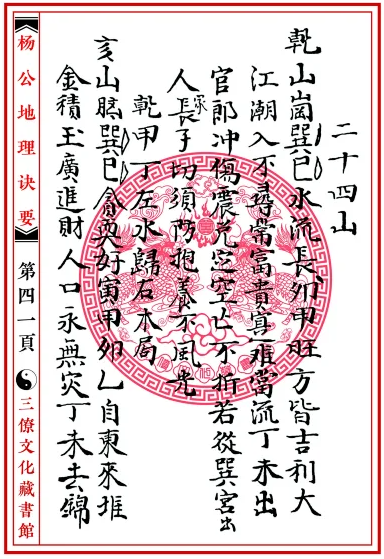 二十四山
乹山崗巽巳水流長卯甲旺方皆吉利大
江潮入不尋常富貴寔难當流丁未出
官郎冲傷震兌空亡不折若從巽宮出
人長子切須防抱養不風光
乹甲丁左水歸右本局
亥山巽巳貪好寅甲卯乙自東來堆
金積玉廣進財人口永無灾丁未去錦
杨公地理诀要
第四一頁
三僚文化藏書館